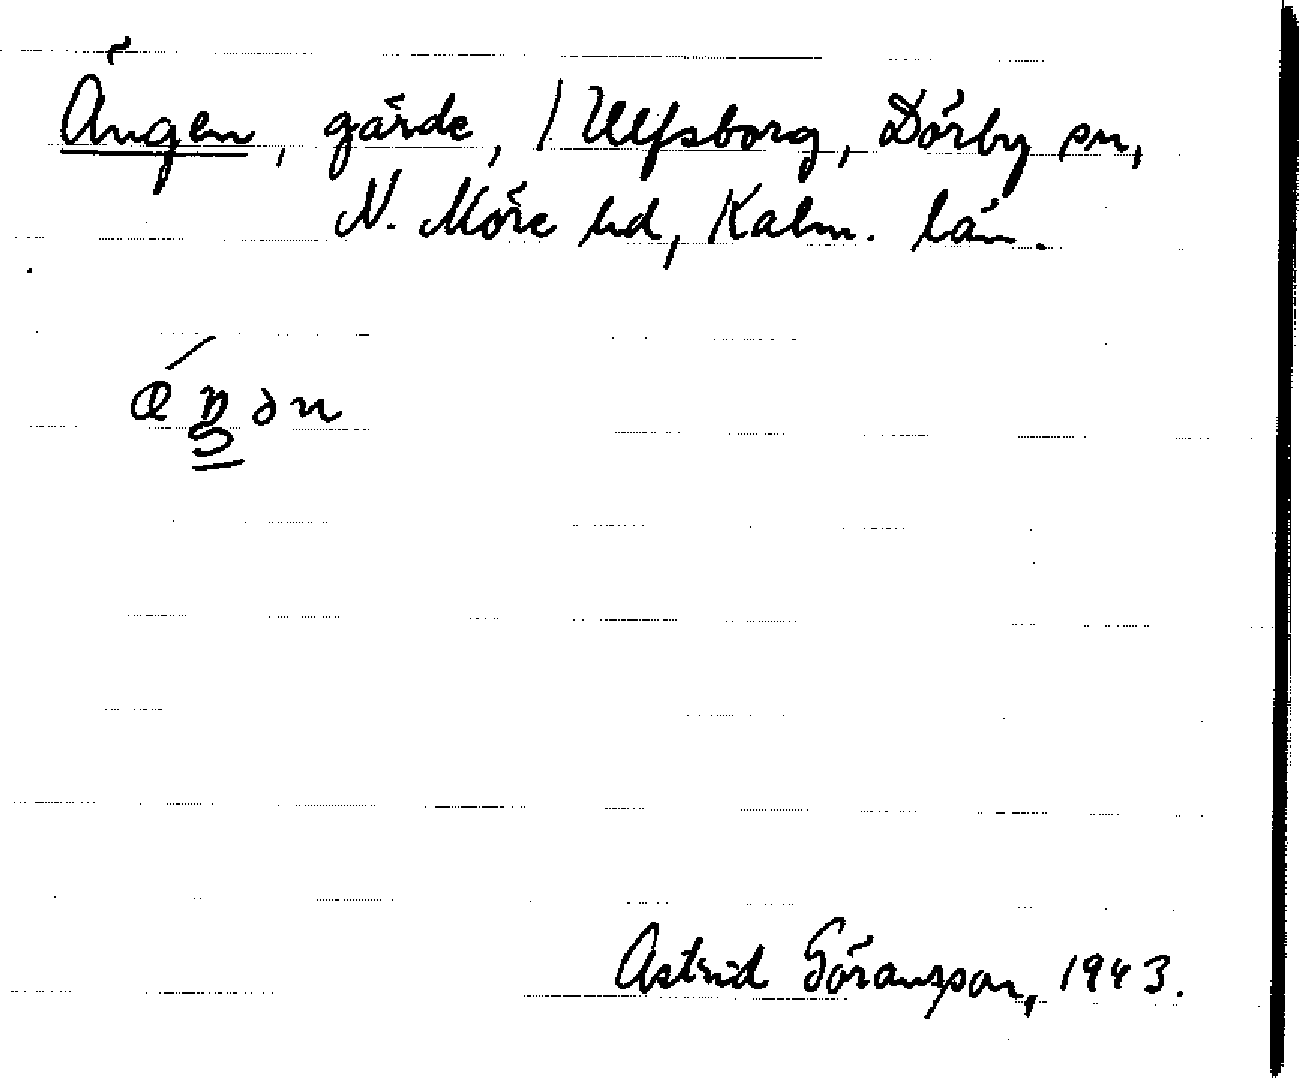 Ängen, gärde, / Ulfsborg, Dörby sn,
N. Möre hd, Kalm. län.
Astrid Göransson, 1943.